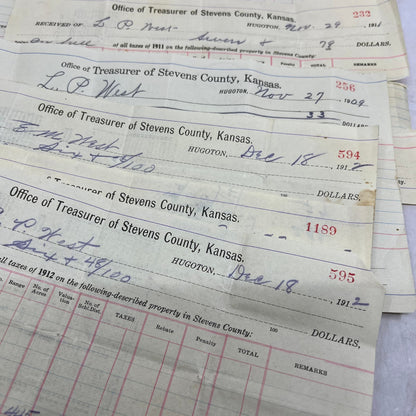 Office of Treasurer of Stevens County, Kansas.
232
RECEIVED OF L. P. West HUGOTON, Nov. 29 1911
in full Seven & 78 DOLLARS,
of all taxes of 1911 on the following-described property in Stevens County:
TOTAL REMARKS
Office of Treasurer of Stevens County, Kansas.
256
L. P. West HUGOTON, Nov 27 1909
33 DOLLARS
Office of Treasurer of Stevens County, Kansas.
594
E M West HUGOTON, Dec 18 1912
Six + /100
DOLLARS,
Office of Treasurer of Stevens County, Kansas.
1189
Office of Treasurer of Stevens County, Kansas.
595
L P West HUGOTON, Dec 18 1912
Six + 48/100
DOLLARS,
all taxes of 1912 on the following-described property in Stevens County:
Range No. of Acres Valuation No. of Schl. Dist. TAXES Rebate Penalty TOTAL 100 REMARKS